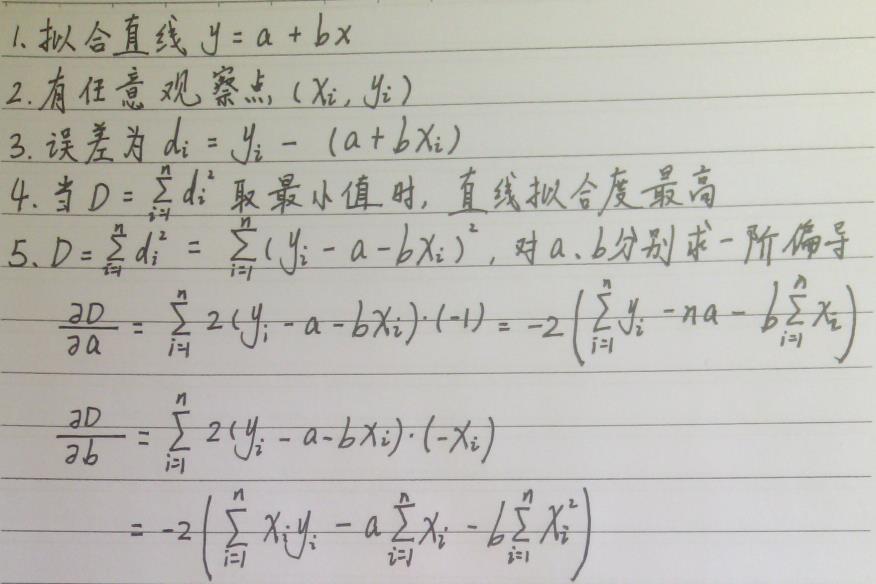 1. 拟合直线 y = a + bx
2. 有任意观察点 (xᵢ, yᵢ)
3. 误差为 dᵢ = yᵢ - (a + bxᵢ)
4. 当 D = ∑ᵢ₌₁ⁿ dᵢ² 取最小值时, 直线拟合度最高
5. D = ∑ᵢ₌₁ⁿ dᵢ² = ∑ᵢ₌₁ⁿ (yᵢ - a - bxᵢ)², 对 a、b 分别求一阶偏导
∂D/∂a = ∑ᵢ₌₁ⁿ 2(yᵢ - a - bxᵢ)·(-1) = -2(∑ᵢ₌₁ⁿ yᵢ - na - b∑ᵢ₌₁ⁿ xᵢ)
∂D/∂b = ∑ᵢ₌₁ⁿ 2(yᵢ - a - bxᵢ)·(-xᵢ)
= -2(∑ᵢ₌₁ⁿ xᵢyᵢ - a∑ᵢ₌₁ⁿ xᵢ - b∑ᵢ₌₁ⁿ xᵢ²)